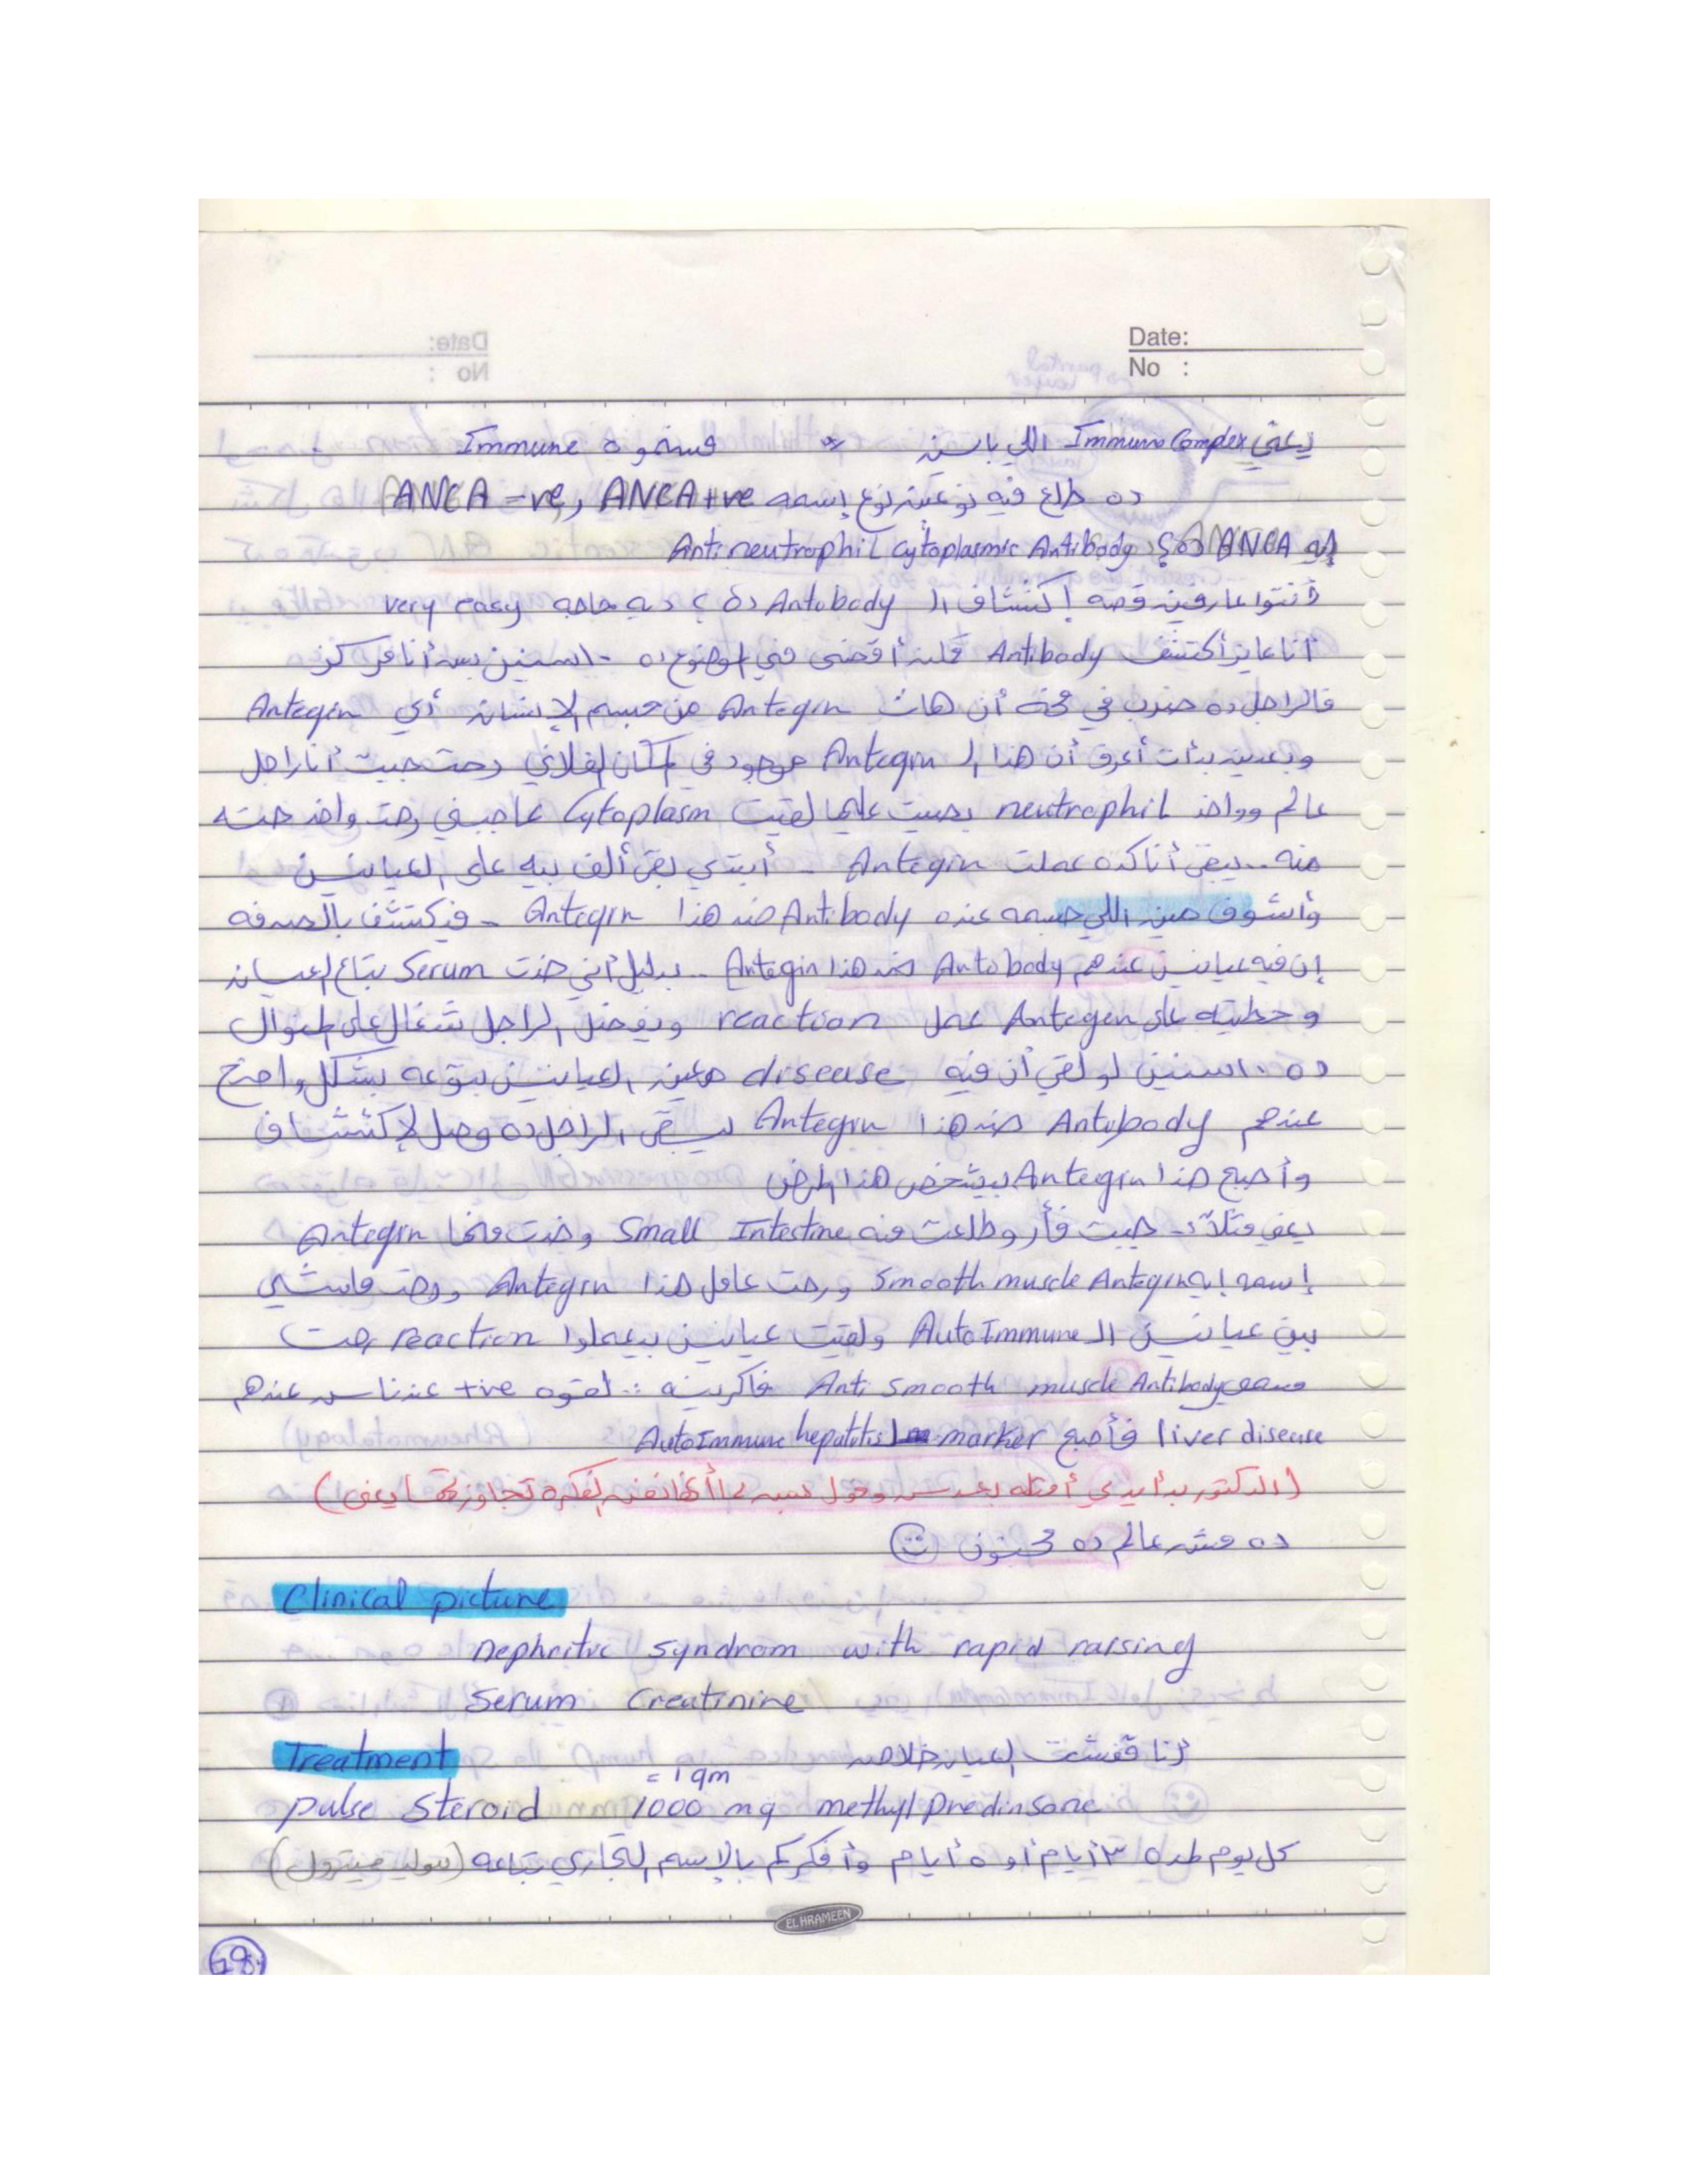 Date:
No :
يعني Immuno Complex اللي باين فسموه Immune
ده طلع فيه نوعين نوع إسمه ANCA +ve و ANCA -ve
إيه ANCA ده؟ Anti neutrophil cytoplasmic Antibody
أنتوا عارفين قصه إكتشاف الـ Antibody ده؟ ديه حاجه very easy
أنا عايز أكتشف Antibody أقضى في الموضوع ده ١٠ سنين بس أنا مركز
فالراجل ده ضرب في مخه أن هات Antegin من جسم الإنسان أي Antegin
وبعدين بدأت أعرف أن هذا الـ Antegin موجود في المكان الفلاني رحت جبت أنا راجل
عالم وواخد neutrophil لقيت Cytoplasm عاجبني رحت واخد حته
منه.. يبقى أنا كده عملت Antegin - أبتدي بقى ألف بيه على العيانين
وأشوف مين اللي جسمه عنده Antibody ضد هذا Antegin - فيكتشف بالصدفه
إن فيه عيانين عندهم Antobody ضد هذا Antegin - بدليل أني خدت Serum بتاع العيان
وحطيته على Antegen عمل reaction ويفضل الراجل شغال على المنوال
ده ١٠ سنين لو لقي أن فيه disease معين العيانين بتوعه بشكل واضح
عندهم Antibody ضد هذا Antegin يبقى الراجل ده وصل لإكتشاف
وأصبح هذا Antegin بيشخص هذا المرض
يعني مثلاً :- جبت فأر وطلعت منه Small Intestine وخدت منها Antegin
إسمه إيه Smooth muscle Antegin ورحت عامل هذا Antegin ورحت ماشي
بين عيانين الـ AutoImmune ولقيت عيانين بيعملوا reaction رحت
مسميه Anti Smooth muscle Antibody فاكرينه :: لقوه +ve عند ناس عندهم
liver disease فأصبح marker لـ AutoImmune hepatitis
(الدكتور بدأ يدي أمثله بعد بس وقول لما أنا فهمت الفكرة تجاوزتها يعني)
ده مش عالم ده مجنون ☺
Clinical picture
Nephritic Syndrom with rapid raising
Serum Creatinine
Treatment أنا قفشت العيان خلاص
= 1 gm
pulse Steroid 1000 mg methyl predinsone
كل يوم لمده ٣ أيام أو ٥ أيام وأفكركم بالإسم التجاري بتاعه (سوليد ميترول)
EL HRAMEEN